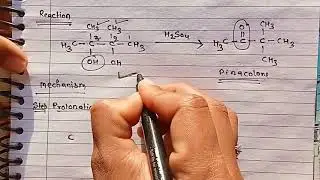 Reaction
CH₃ CH₃
H₃C – C – C – CH₃ H₂SO₄ → H₃C – C – C – CH₃
OH OH O CH₃ CH₃
Pinacolone
mechanism
Step Protonatio
C